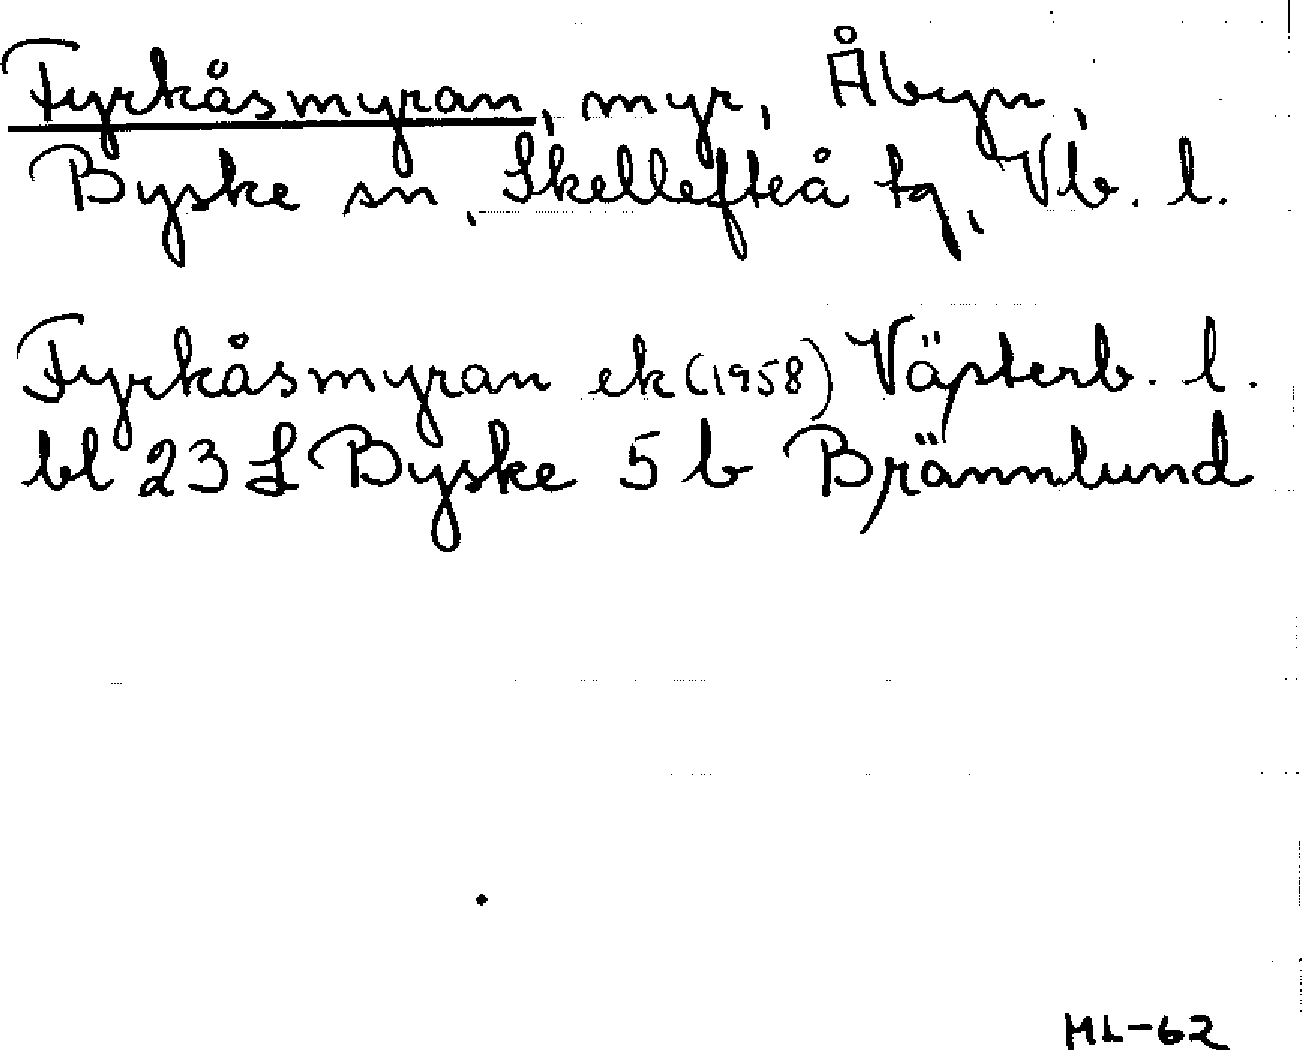 Fyrkåsmyran, myr, Åbyn,
Byske sn, Skellefteå tg, Vb. l.
Fyrkåsmyran ek (1958) Västerb. l.
bl 23 L Byske 5 b Brännlund
ML-62